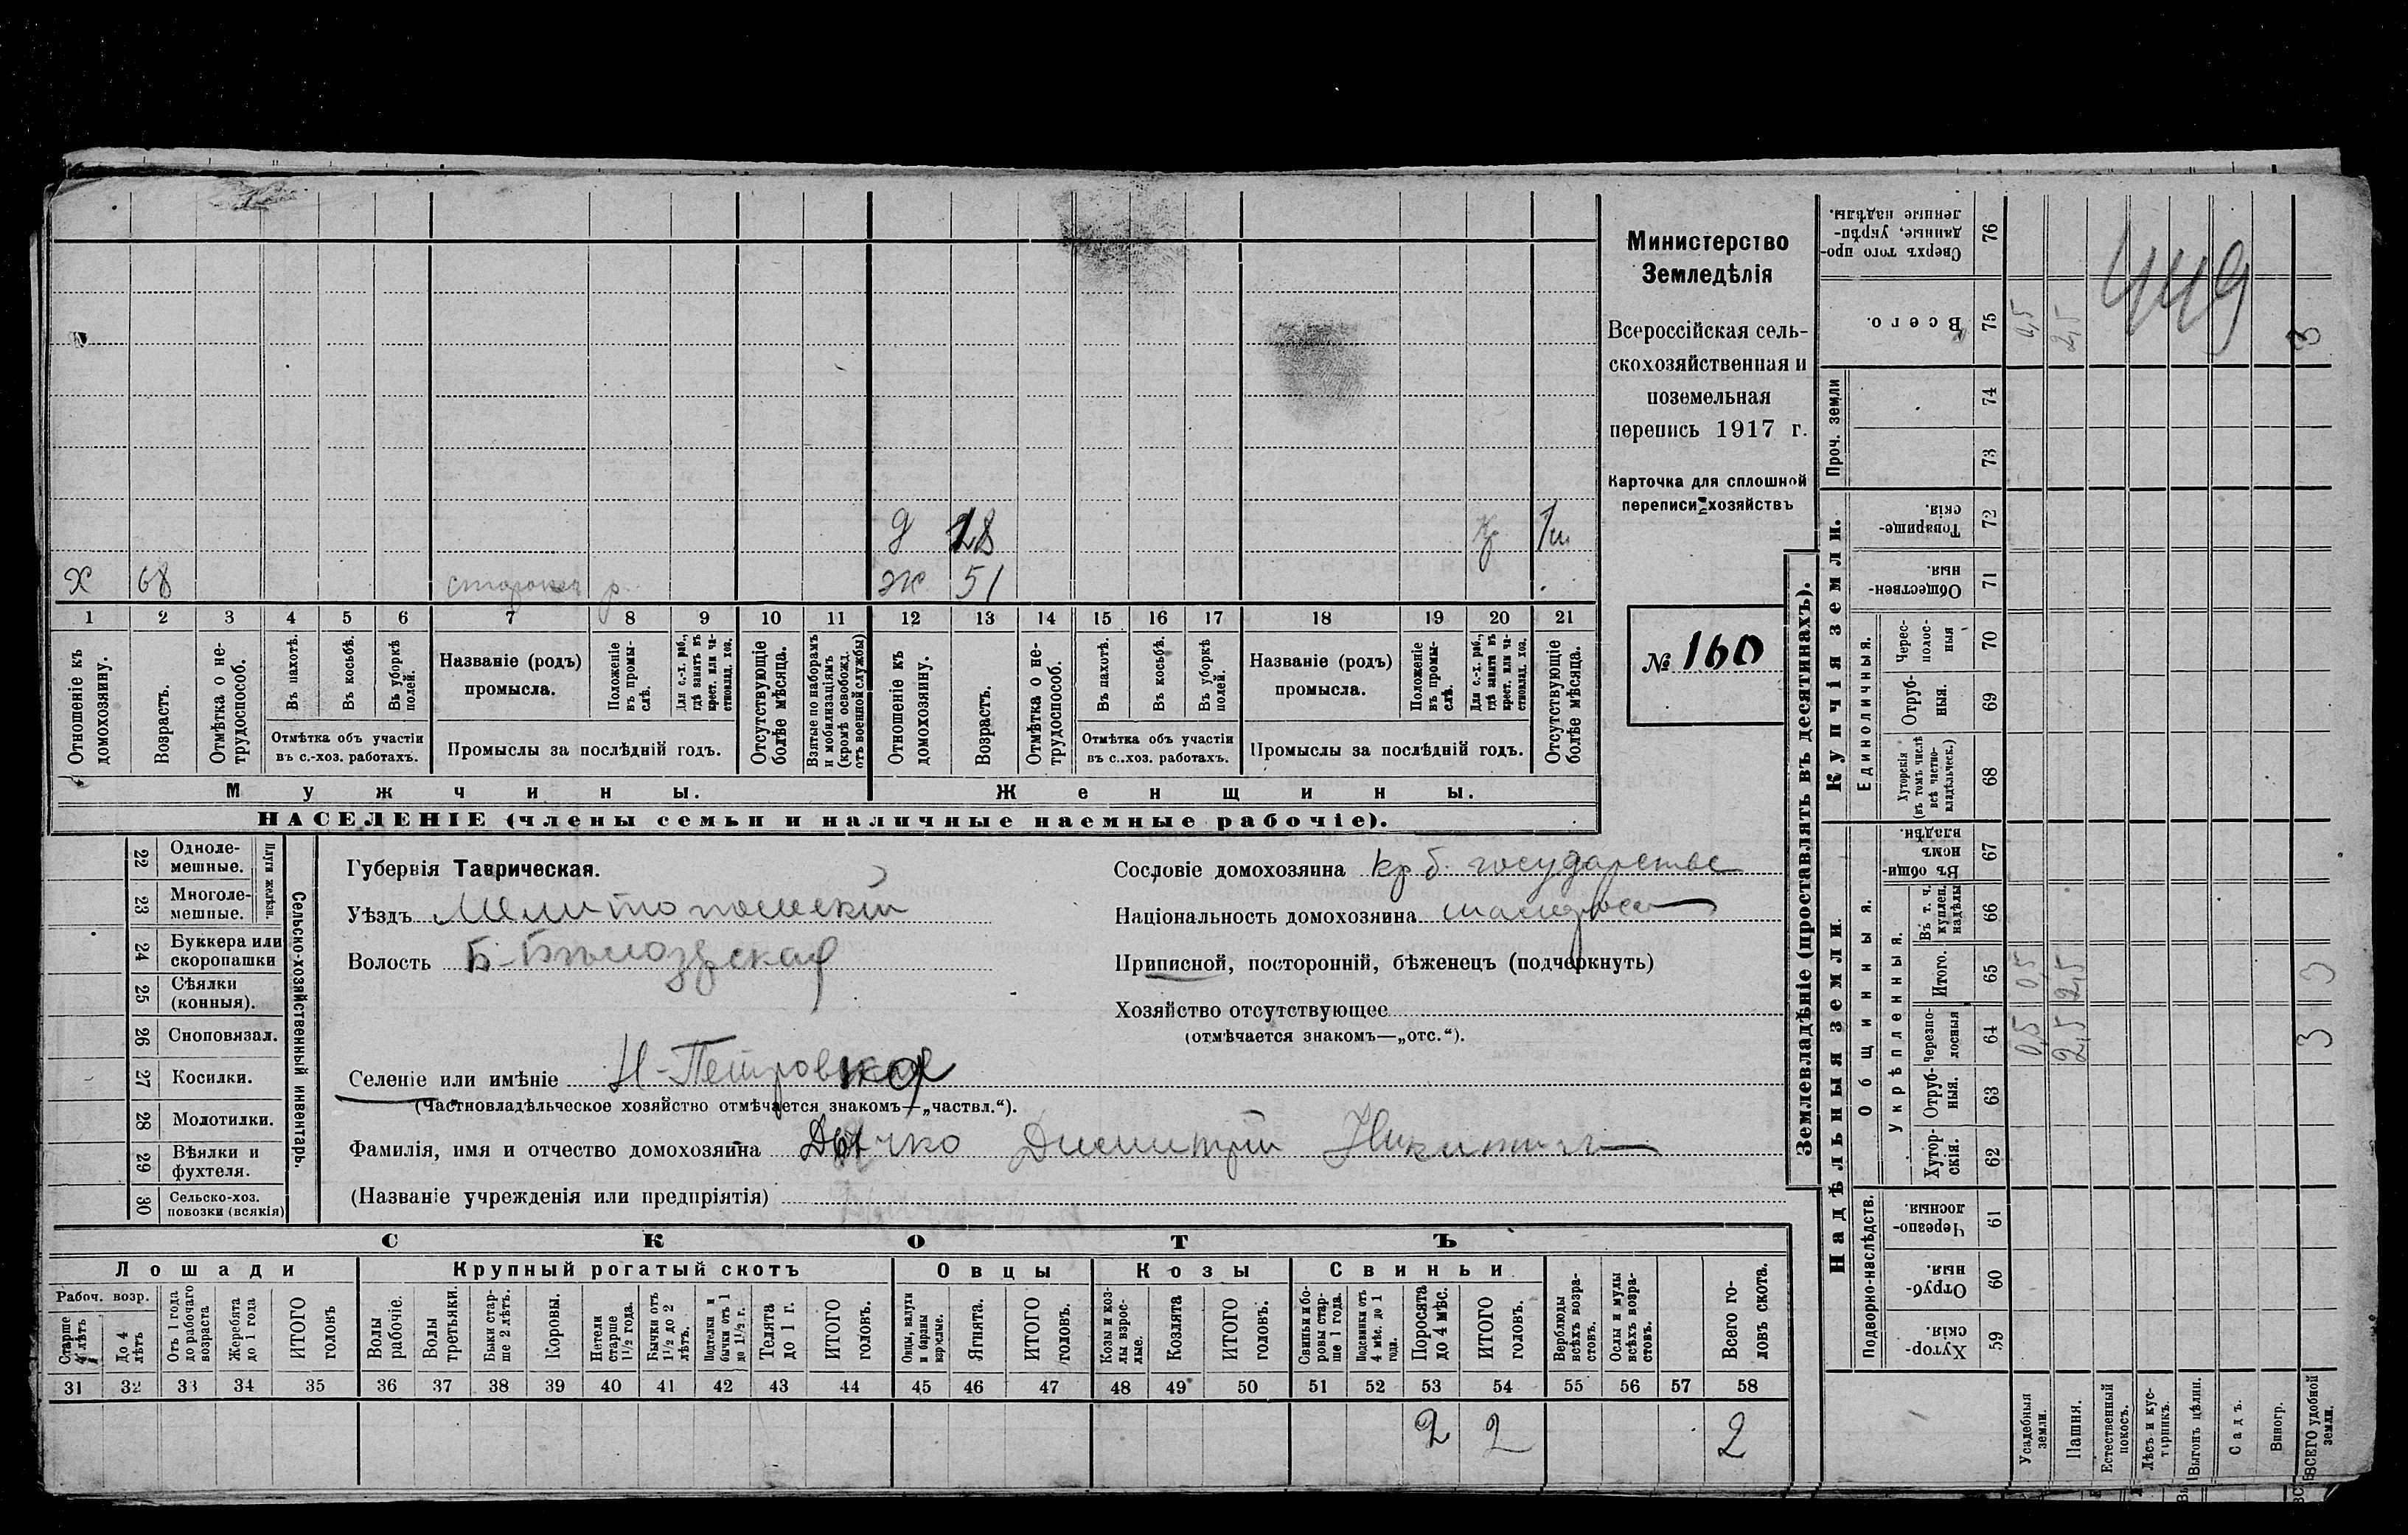 Министерство
Земледѣлія
Всероссійская сель-
скохозяйственная и
поземельная
перепись 1917 г.
Карточка для сплошной
переписи хозяйствъ
№ 160
д 28 1
х 68 р. ж 51
1 2 3 4 5 6 7 8 9 10 11 12 13 14 15 16 17 18 19 20 21
Отношеніе къ домохозяину.
Возрастъ.
Отмѣтка о не-трудоспособ.
Въ пахотѣ.
Въ косьбѣ.
Въ уборкѣ полей.
Отмѣтка объ участіи
въ с.-хоз. работахъ.
Названіе (родъ)
промысла.
Положеніе въ промы-слѣ.
Для с.-х. раб., гдѣ занятъ въ крест. или ча-стновлад. хоз.
Промыслы за послѣдній годъ.
Отсутствующіе болѣе мѣсяца.
Взятые по наборамъ и мобилизаціямъ (кромѣ освобожд. отъ военной службы)
Отношеніе къ домохозяину.
Возрастъ.
Отмѣтка о не-трудоспособ.
Въ пахотѣ.
Въ косьбѣ.
Въ уборкѣ полей.
Отмѣтка объ участіи
въ с..хоз. работахъ.
Названіе (родъ)
промысла.
Положеніе въ промы-слѣ.
Для с.-х. раб., гдѣ занята въ крест. или ча-стновлад. хоз.
Промыслы за послѣдній годъ.
Отсутствующіе болѣе мѣсяца.
Мужчины. Женщины.
НАСЕЛЕНІЕ (члены семьи и наличные наемные рабочіе).
Сельско-хозяйственный инвентарь.
Плуги желѣзн.
22 Одноле-мешные.
23 Многоле-мешные.
24 Буккера или скоропашки
25 Сѣялки (конныя).
26 Сноповязал.
27 Косилки.
28 Молотилки.
29 Вѣялки и фухтеля.
30 Сельско-хоз. повозки (всякія)
Губернія Таврическая.
Уѣздъ Мелитопольскій
Волость Б-Бѣлозерская
Селеніе или имѣніе Н-Петровка
(Частновладѣльческое хозяйство отмѣчается знакомъ—„частвл.“).
Фамилія, имя и отчество домохозяина Дячко Димитрій Никитич
(Названіе учрежденія или предпріятія)
Сословіе домохозяина кр б. государстве
Національность домохозяина малоросс
Приписной, посторонній, бѣженецъ (подчеркнуть)
Хозяйство отсутствующее
(отмѣчается знакомъ—„отс.“).
СКОТЪ
Лошади Крупный рогатый скотъ Овцы Козы Свиньи
Рабоч. возр.
Старше 4 лѣтъ
До 4 лѣтъ
Отъ 1 года до рабочаго возраста
Жеребята до 1 года
ИТОГО головъ
Волы рабочіе.
Волы третьяки.
Быки стар-ше 2 лѣтъ.
Коровы.
Нетели старше 1½ года.
Бычки отъ 1½ до 2 лѣтъ.
Подтелки и бычки отъ 1 до 1½ г.
Телята до 1 г.
ИТОГО головъ.
Овцы, валухи и бараны взрослые.
Ягнята.
ИТОГО головъ.
Козы и коз-лы взрос-лые.
Козлята
ИТОГО головъ.
Свиньи и бо-ровы стар-ше 1 года.
Подсвинки отъ 4 мѣс. до 1 года.
Поросята до 4 мѣс.
ИТОГО головъ.
Верблюды всѣхъ возра-стовъ.
Ослы и мулы всѣхъ возра-стовъ.
Всего го-ловъ скота.
31 32 33 34 35 36 37 38 39 40 41 42 43 44 45 46 47 48 49 50 51 52 53 54 55 56 57 58
2 2 2
Землевладѣніе (проставлять въ десятинахъ).
Надѣльныя земли. Купчія земли. Проч. земли
Подворно-наслѣдств.
Общинныя.
Укрѣпленныя.
Единоличныя.
59 Хутор-скія.
60 Отруб-ныя.
61 Черезпо-лосныя.
62 Хутор-скія.
63 Отруб-ныя.
64 Черезпо-лосныя
65 Итого.
66 Въ т. ч. куплен. надѣлы
67 Въ общи-номъ владѣн.
68 Хуторскія (въ томъ числѣ всѣ частно-владѣльческ.)
69 Отруб-ныя.
70 Черес-полос-ныя
71 Обществен-ныя.
72 Товарище-скія.
73
74
75 Всего.
76 Сверхъ того про-данные, укрѣп-ленные надѣлы.
Усадебныя земли. 0,5 0,5 0,5
Пашня. 2,5 2,5 2,5
Естественный покосъ.
Лѣсъ и кус-тарникъ.
Выгонъ цѣлин.
Садъ.
Виногр.
ВСЕГО удобной земли. 3 3 3
449